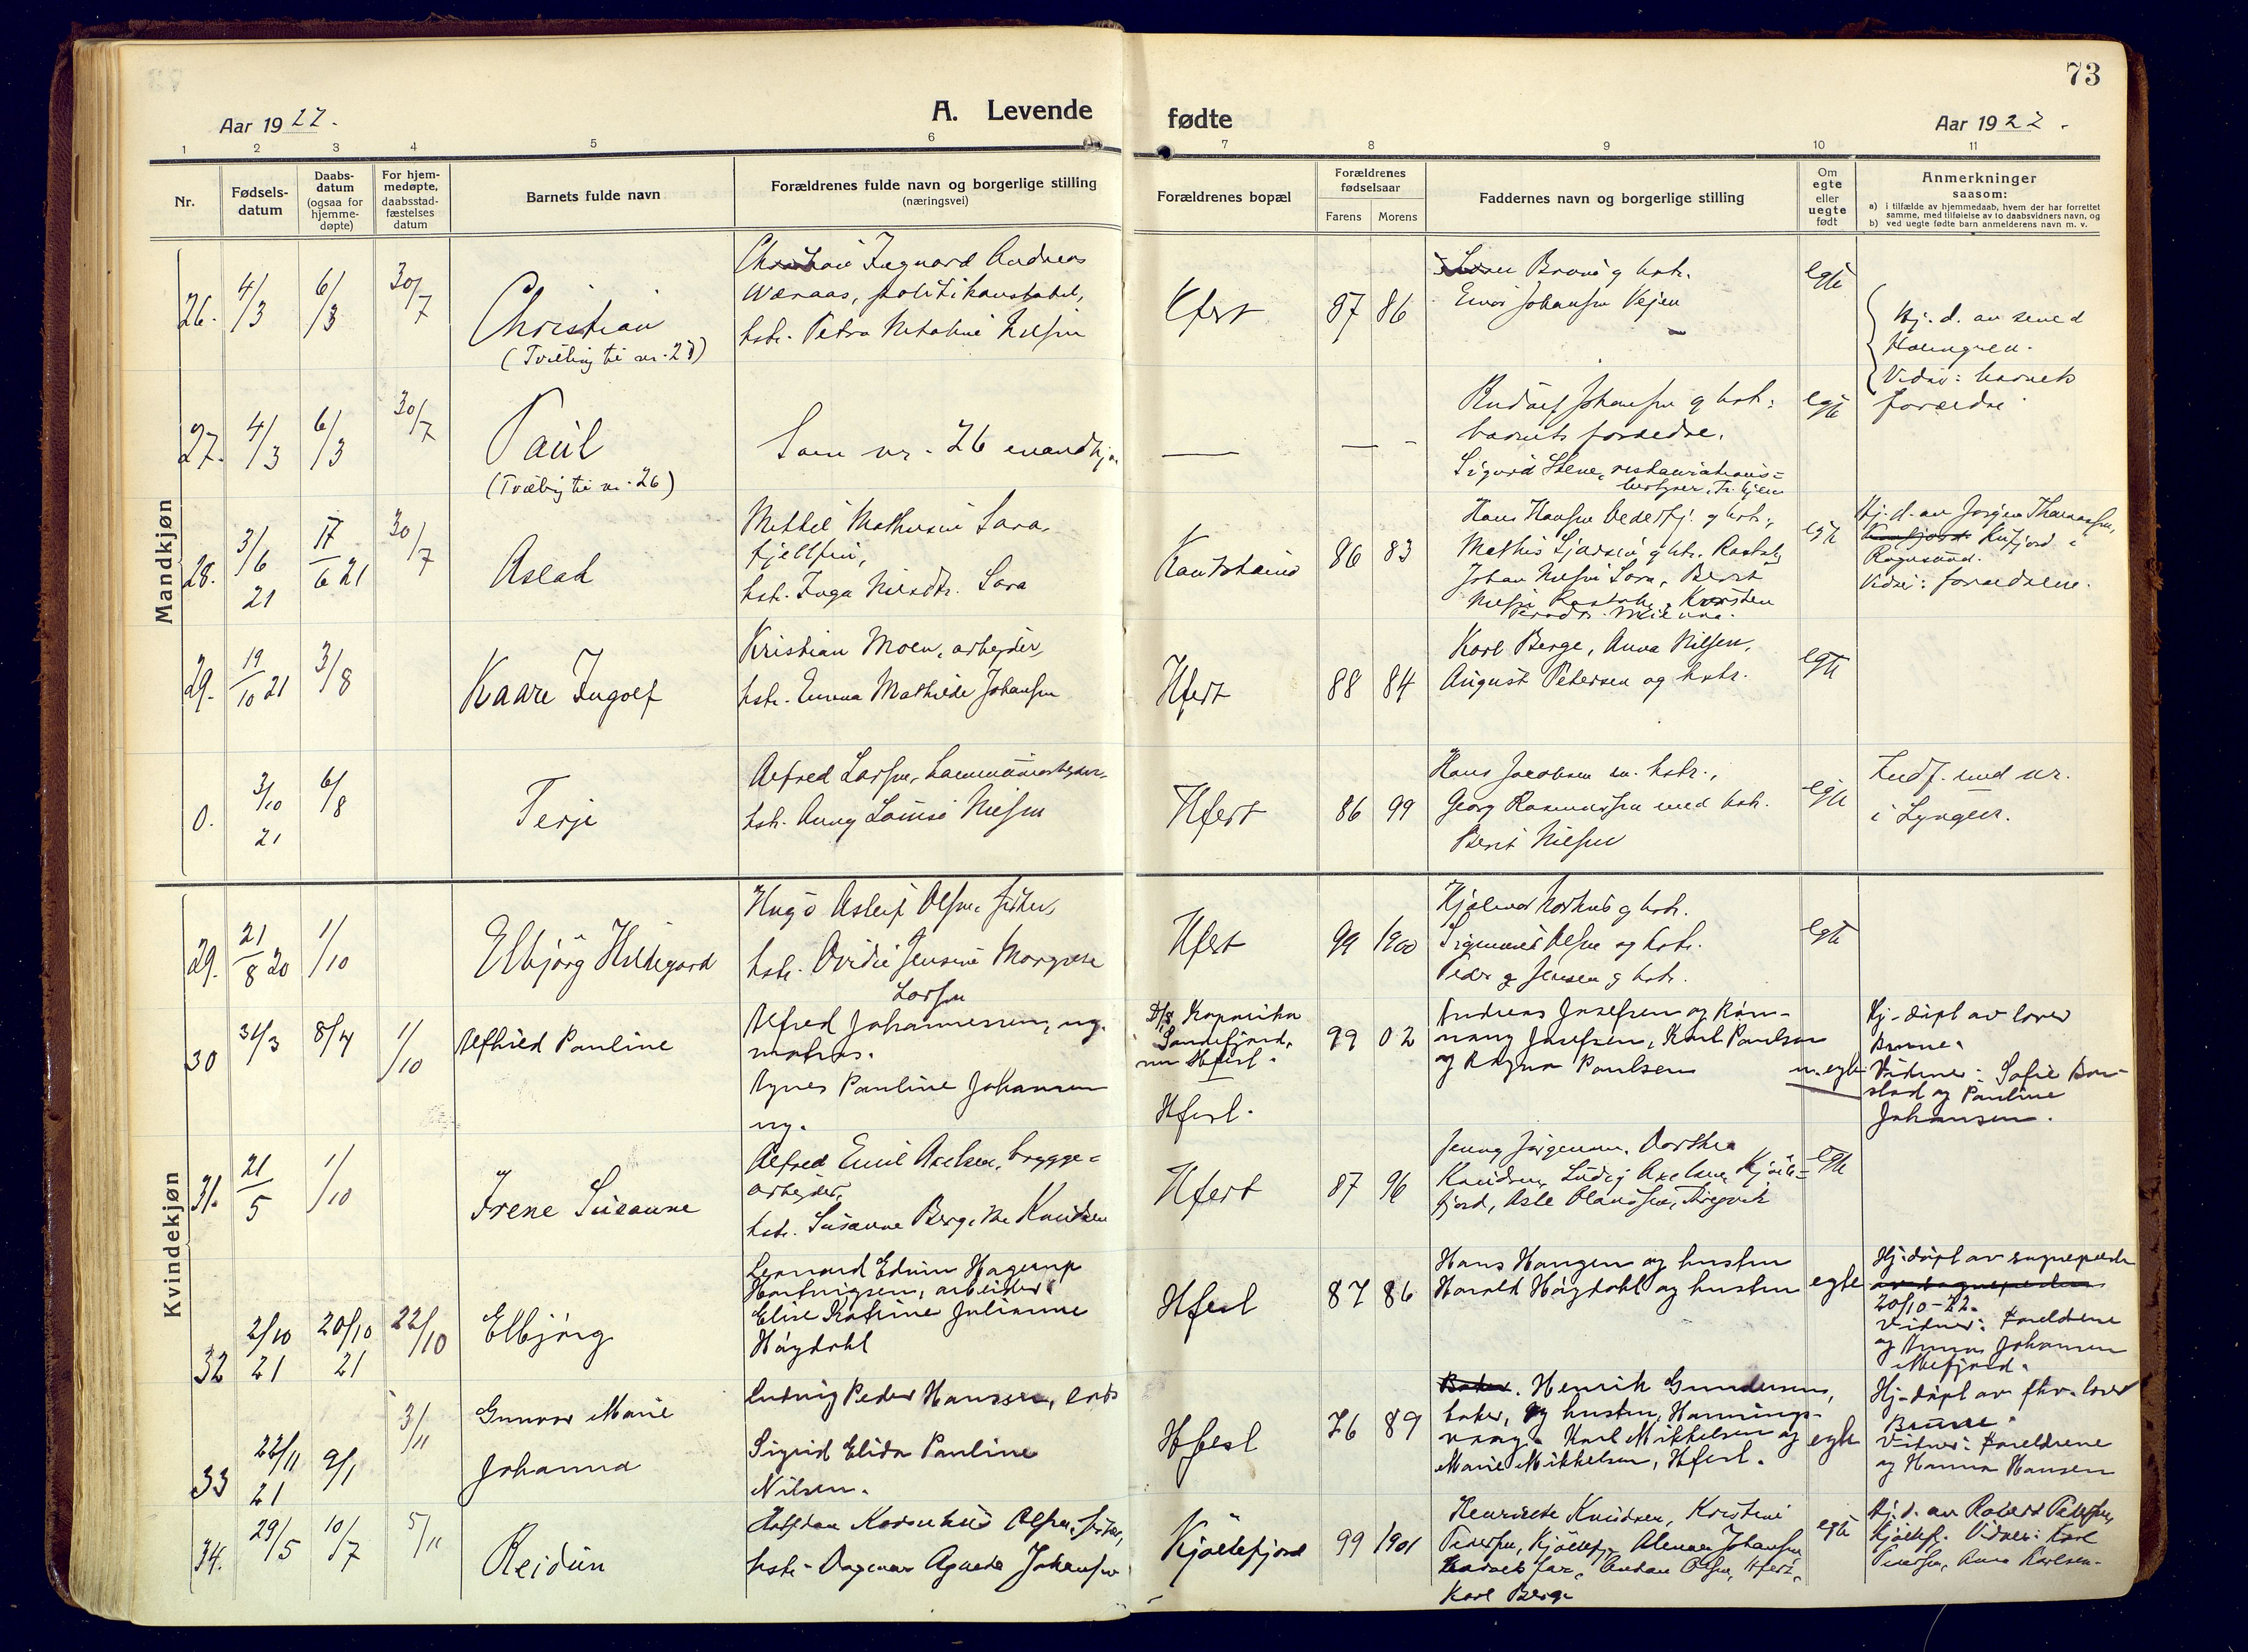 73
Aar 1922.
A. Levende
fødte
Aar 1922.
1 2 3 4 5 6 7 8 9 10 11
Nr.
Fødsels-
datum
Daabs-
datum
(ogsaa for
hjemme-
døpte)
For hjem-
medøpte,
daabsstad-
fæstelses
datum
Barnets fulde navn
Forældrenes fulde navn og borgerlige stilling
(næringsvei)
Forældrenes bopæl
Forældrenes
fødselsaar
Farens Morens
Faddernes navn og borgerlige stilling
Om
egte
eller
uegte
født
Anmerkninger
saasom:
a) i tilfælde av hjemmedaab, hvem der har forrettet
samme, med tilføielse av to daabsvidners navn, og
b) ved uegte fødte barn anmelderens navn m. v.
Mandkjøn
26. 4/3 6/3 30/7
Christian
(Tvilling til nr. 27)
Ingvard Andreas
Wæraas, politikonstabel,
hstr. Petra
Hfest 87 86
Bruns og hstr.
Einar Johansen Vejen
egte
Hj. d. av
Holmgren.
Vidner: barnets
forældre
27. 4/3 6/3 30/7
Paul
(Tvilling til nr. 26)
Som nr. 26 mandkj.
— — -
Rudolf Johansen og hstr.
barnets forældre.
Sigurd Stene, restaurations-
egte
28. 3/6 21 17/6 21 30/7
Aslak
Mikkel Mathisen Sara,
fjellfin,
hstr. Inga Nilsdtr. Sara
Kautokeino 86 83
Hans Hansen og hstr.,
Johan Nilsen Sara, Berit
egte
Hj. d. av Jørgen Thomassen,
Kufjord i
Rognsund.
Vidner: forældrene.
29. 19/10 21 3/8
Kaare Ingolf
Kristian Moen, arbeider,
hstr. Emma Mathilde Johansen
Hfest 88 84
Karl Berge, Anna Nilsen,
August Petersen og hstr.
egte
0. 3/10 21 6/8
Terje
Alfred Larsen,
hstr. Anny Louise Nilsen
Hfest 86 99
Hans Jacobsen m. hstr.,
Georg Rasmussen med hstr.
Berit Nilsen
egte
Indf. med nr.
i Lyngen.
Kvindekjøn
29. 21/8 20 1/10
Elbjørg Hildegard
Hugo Asleif Olsen, fisker,
hstr. Ovidie Jensine Margrete
Larsen
Hfest 99 1900
Hjalmar og hstr.
Olsen og hstr.
Peder Jensen og hstr.
egte
30 31/3 8/4 1/10
Alfhild Pauline
Alfred Johannessen, ug.
matros.
Agnes Pauline Johansen
ug.
D/S
Sandefjord,
nu Hfest.
Hfest.
99 02
Andreas Josefsen og
Josefsen, Karl Paulsen
og Ragna Paulsen
u.egte
Hj-døpt av lærer
Brune.
Vidner: Sofie
og Pauline
Johansen.
31. 21/5 1/10
Irene Susanne
Alfred Emil Axelsen, brygge-
arbeider,
hstr. Susanne Bergitte Knudsen
Hfest 87 96
Jenny Jørgensen, Dorthea
Knudsen, Ludvig Axelsen, Kjølle-
fjord, Asle Olaussen,
egte
32 2/10 21 20/10 21 22/10
Elbjørg
Leonard Edvin Hagerup
Hartvigsen, arbeider.
Elise Katrine Julianne
Høgdahl
Hfest 87 86
Hans Haugen og hustru
Harald Høgdahl og hustru
egte
Hj-døpt av sognepresten
20/10-22.
Vidner: Foreldrene
og Anna Johansen
33 22/11 21 9/1 3/11
Gunvor Marie
Johanna
Ludvig Peder Hanssen, lods
Sigrid Elida Pauline
Nilsen.
Hfest 76 89
Baker. Henrik Gundersen,
baker, og hustru, Honnings-
vaag. Karl Mikkelsen og
Marie Mikkelsen, Hfest.
egte
Hj-døpt av fhv. lærer
Brune.
Vidner: Foreldrene
og Hanna Hansen
34. 29/5 10/7 5/11
Reidun
Halfdan Olsen, fisker,
hstr. Dagmar Agnete Johansen
Kjøllefjord 99 1901
Henriette Knudsen, Kristine
Kjøllefj. Johansen
barnets far, Olsen, Hfest,
Karl Berge
egte
Hj. d. av Robert
Kjøllef. Vidner: Karl
Anna Karlsen.